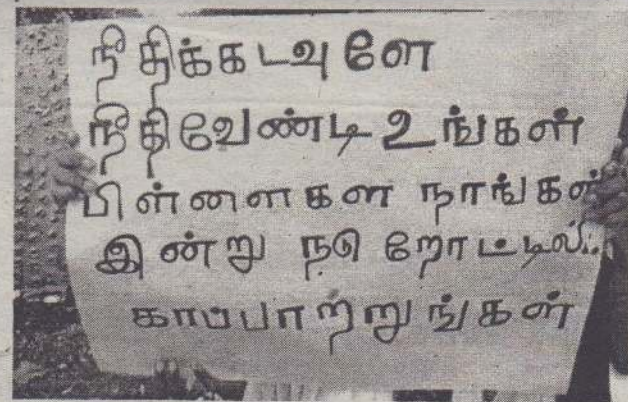 நீதிக்கடவுளே
நீதிவேண்டி உங்கள்
பிள்ளைகள நாங்கள்
இன்று நடு றோட்டில்..
காப்பாற்றுங்கள்